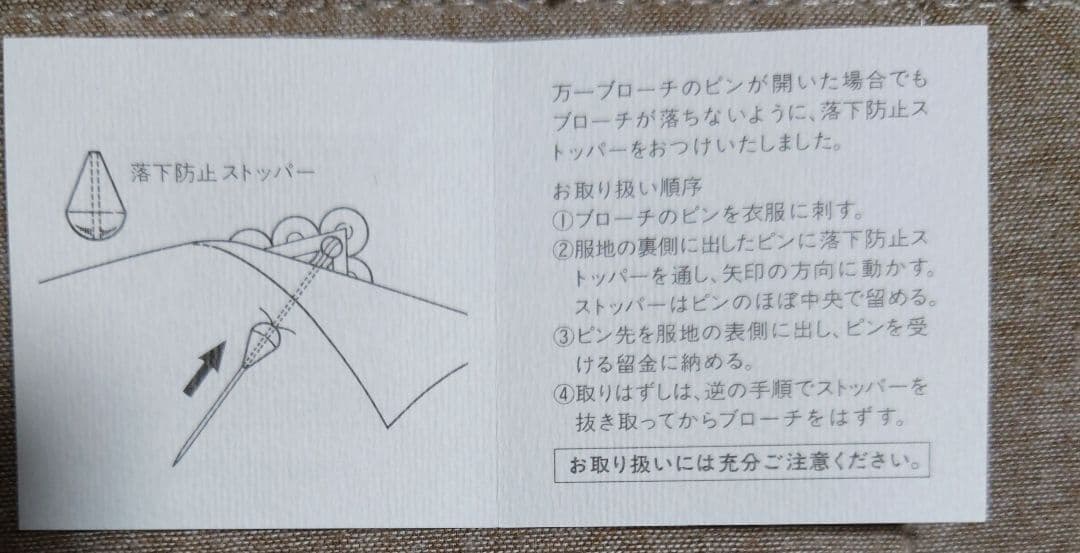 落下防止ストッパー
万一ブローチのピンが開いた場合でも
ブローチが落ちないように、落下防止ス
トッパーをおつけいたしました。
お取り扱い順序
①ブローチのピンを衣服に刺す。
②服地の裏側に出したピンに落下防止ス
トッパーを通し、矢印の方向に動かす。
ストッパーはピンのほぼ中央で留める。
③ピン先を服地の表側に出し、ピンを受
ける留金に納める。
④取りはずしは、逆の手順でストッパーを
抜き取ってからブローチをはずす。
お取り扱いには充分ご注意ください。